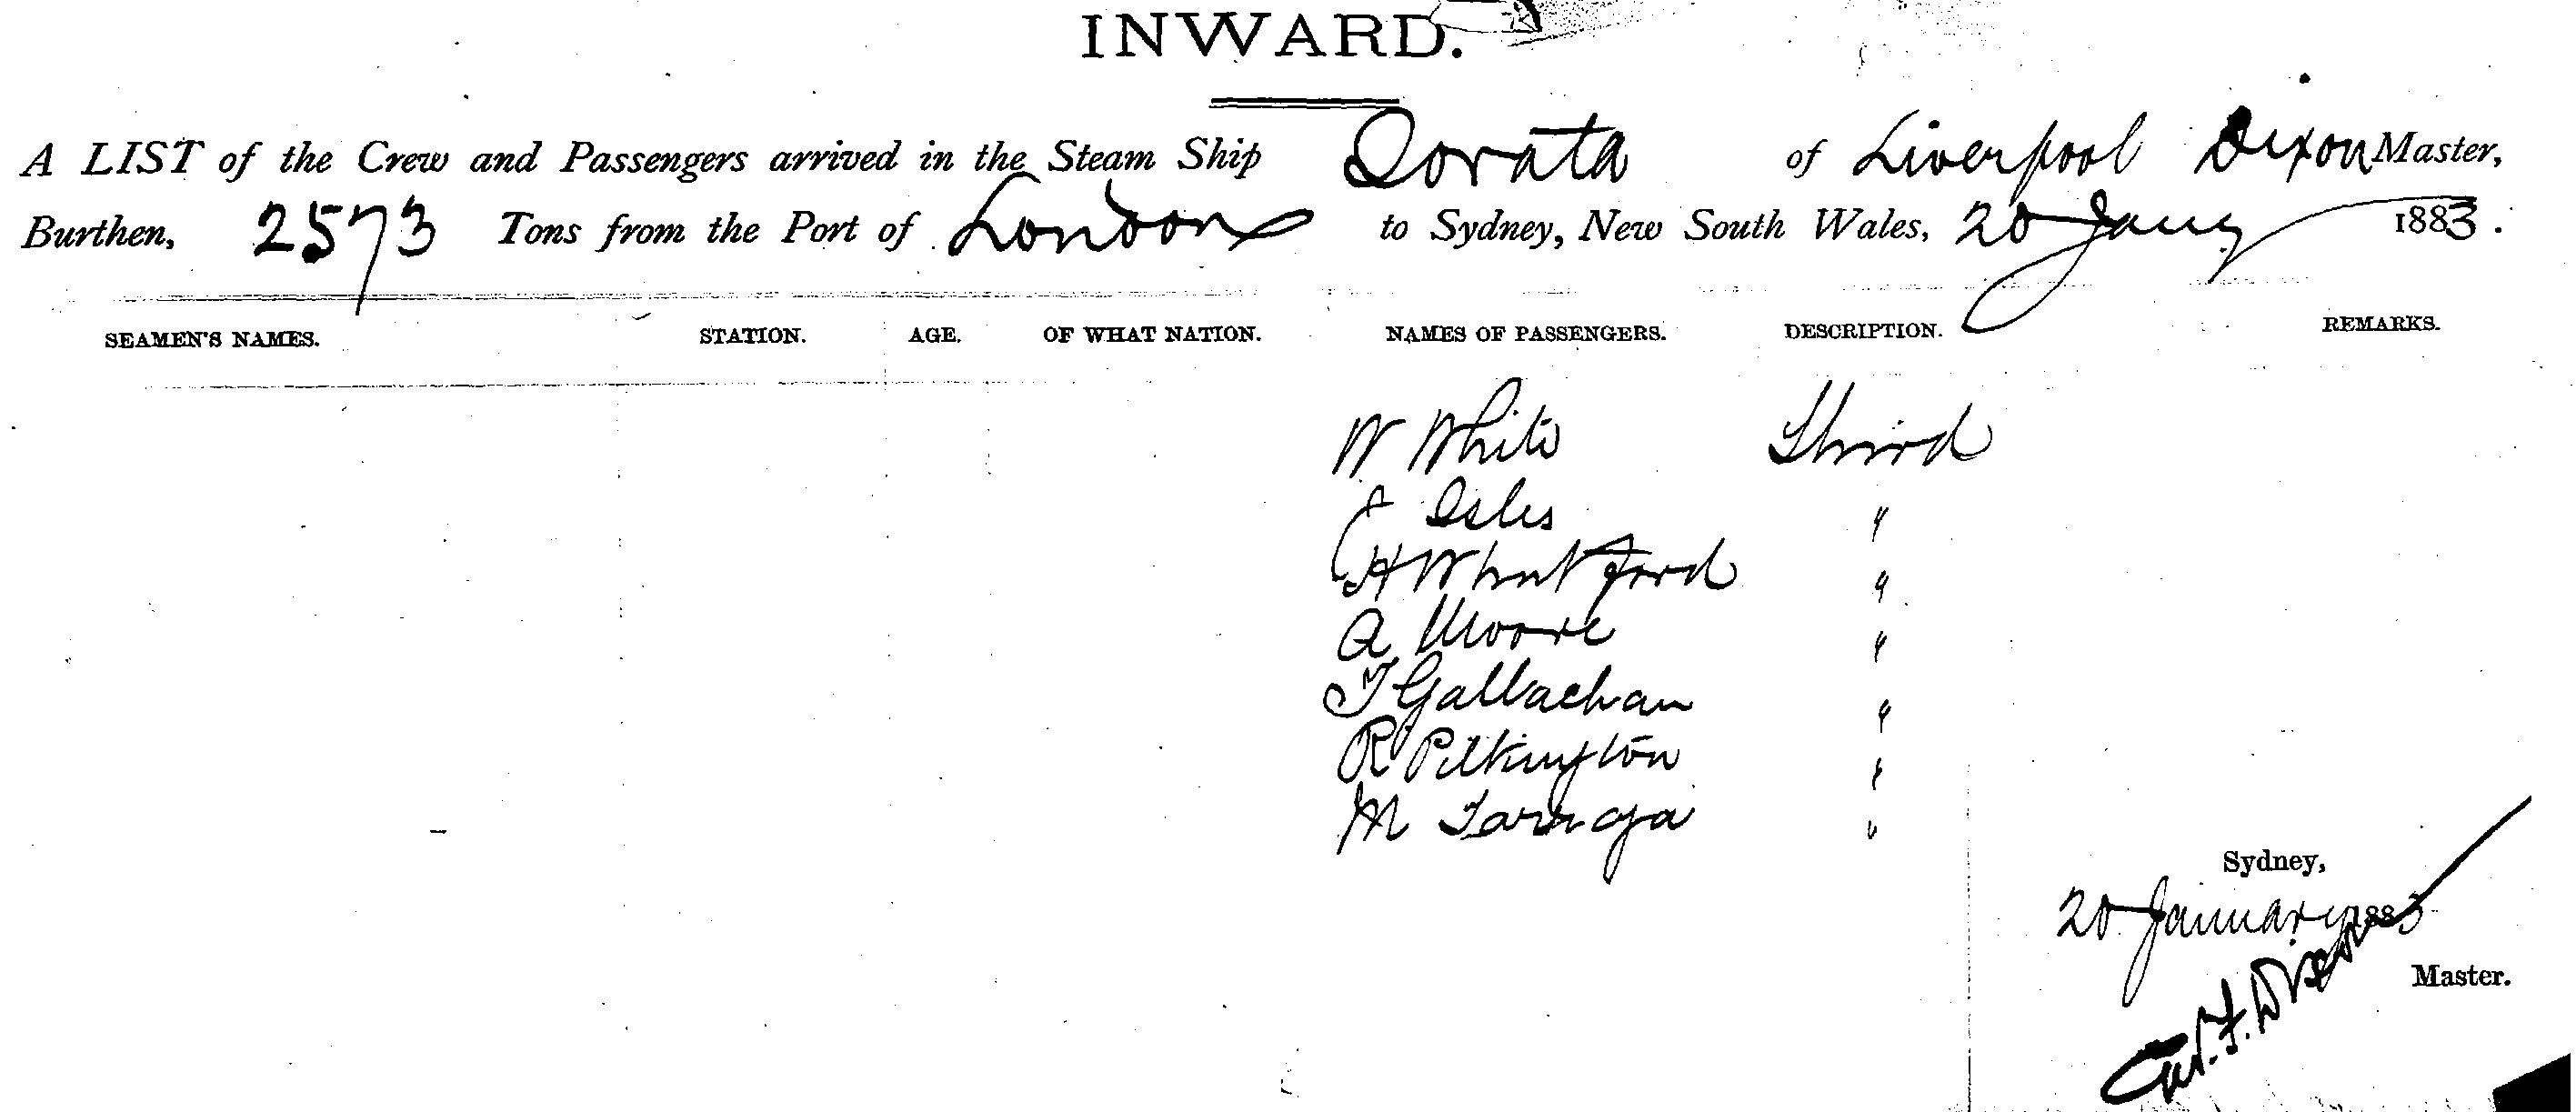 INWARD.
A LIST of the Crew and Passengers arrived in the Steam Ship Sorata of Liverpool Dixon Master,
Burthen, 2573 Tons from the Port of London to Sydney, New South Wales, 20 Jany 1883.
SEAMEN'S NAMES. STATION. AGE. OF WHAT NATION. NAMES OF PASSENGERS. DESCRIPTION. REMARKS.
W White Third
Isles "
H Whitford "
A Moore "
T Gallachan "
R Pilkington "
M "
Sydney,
20 January 1883
F. Dixon Master.